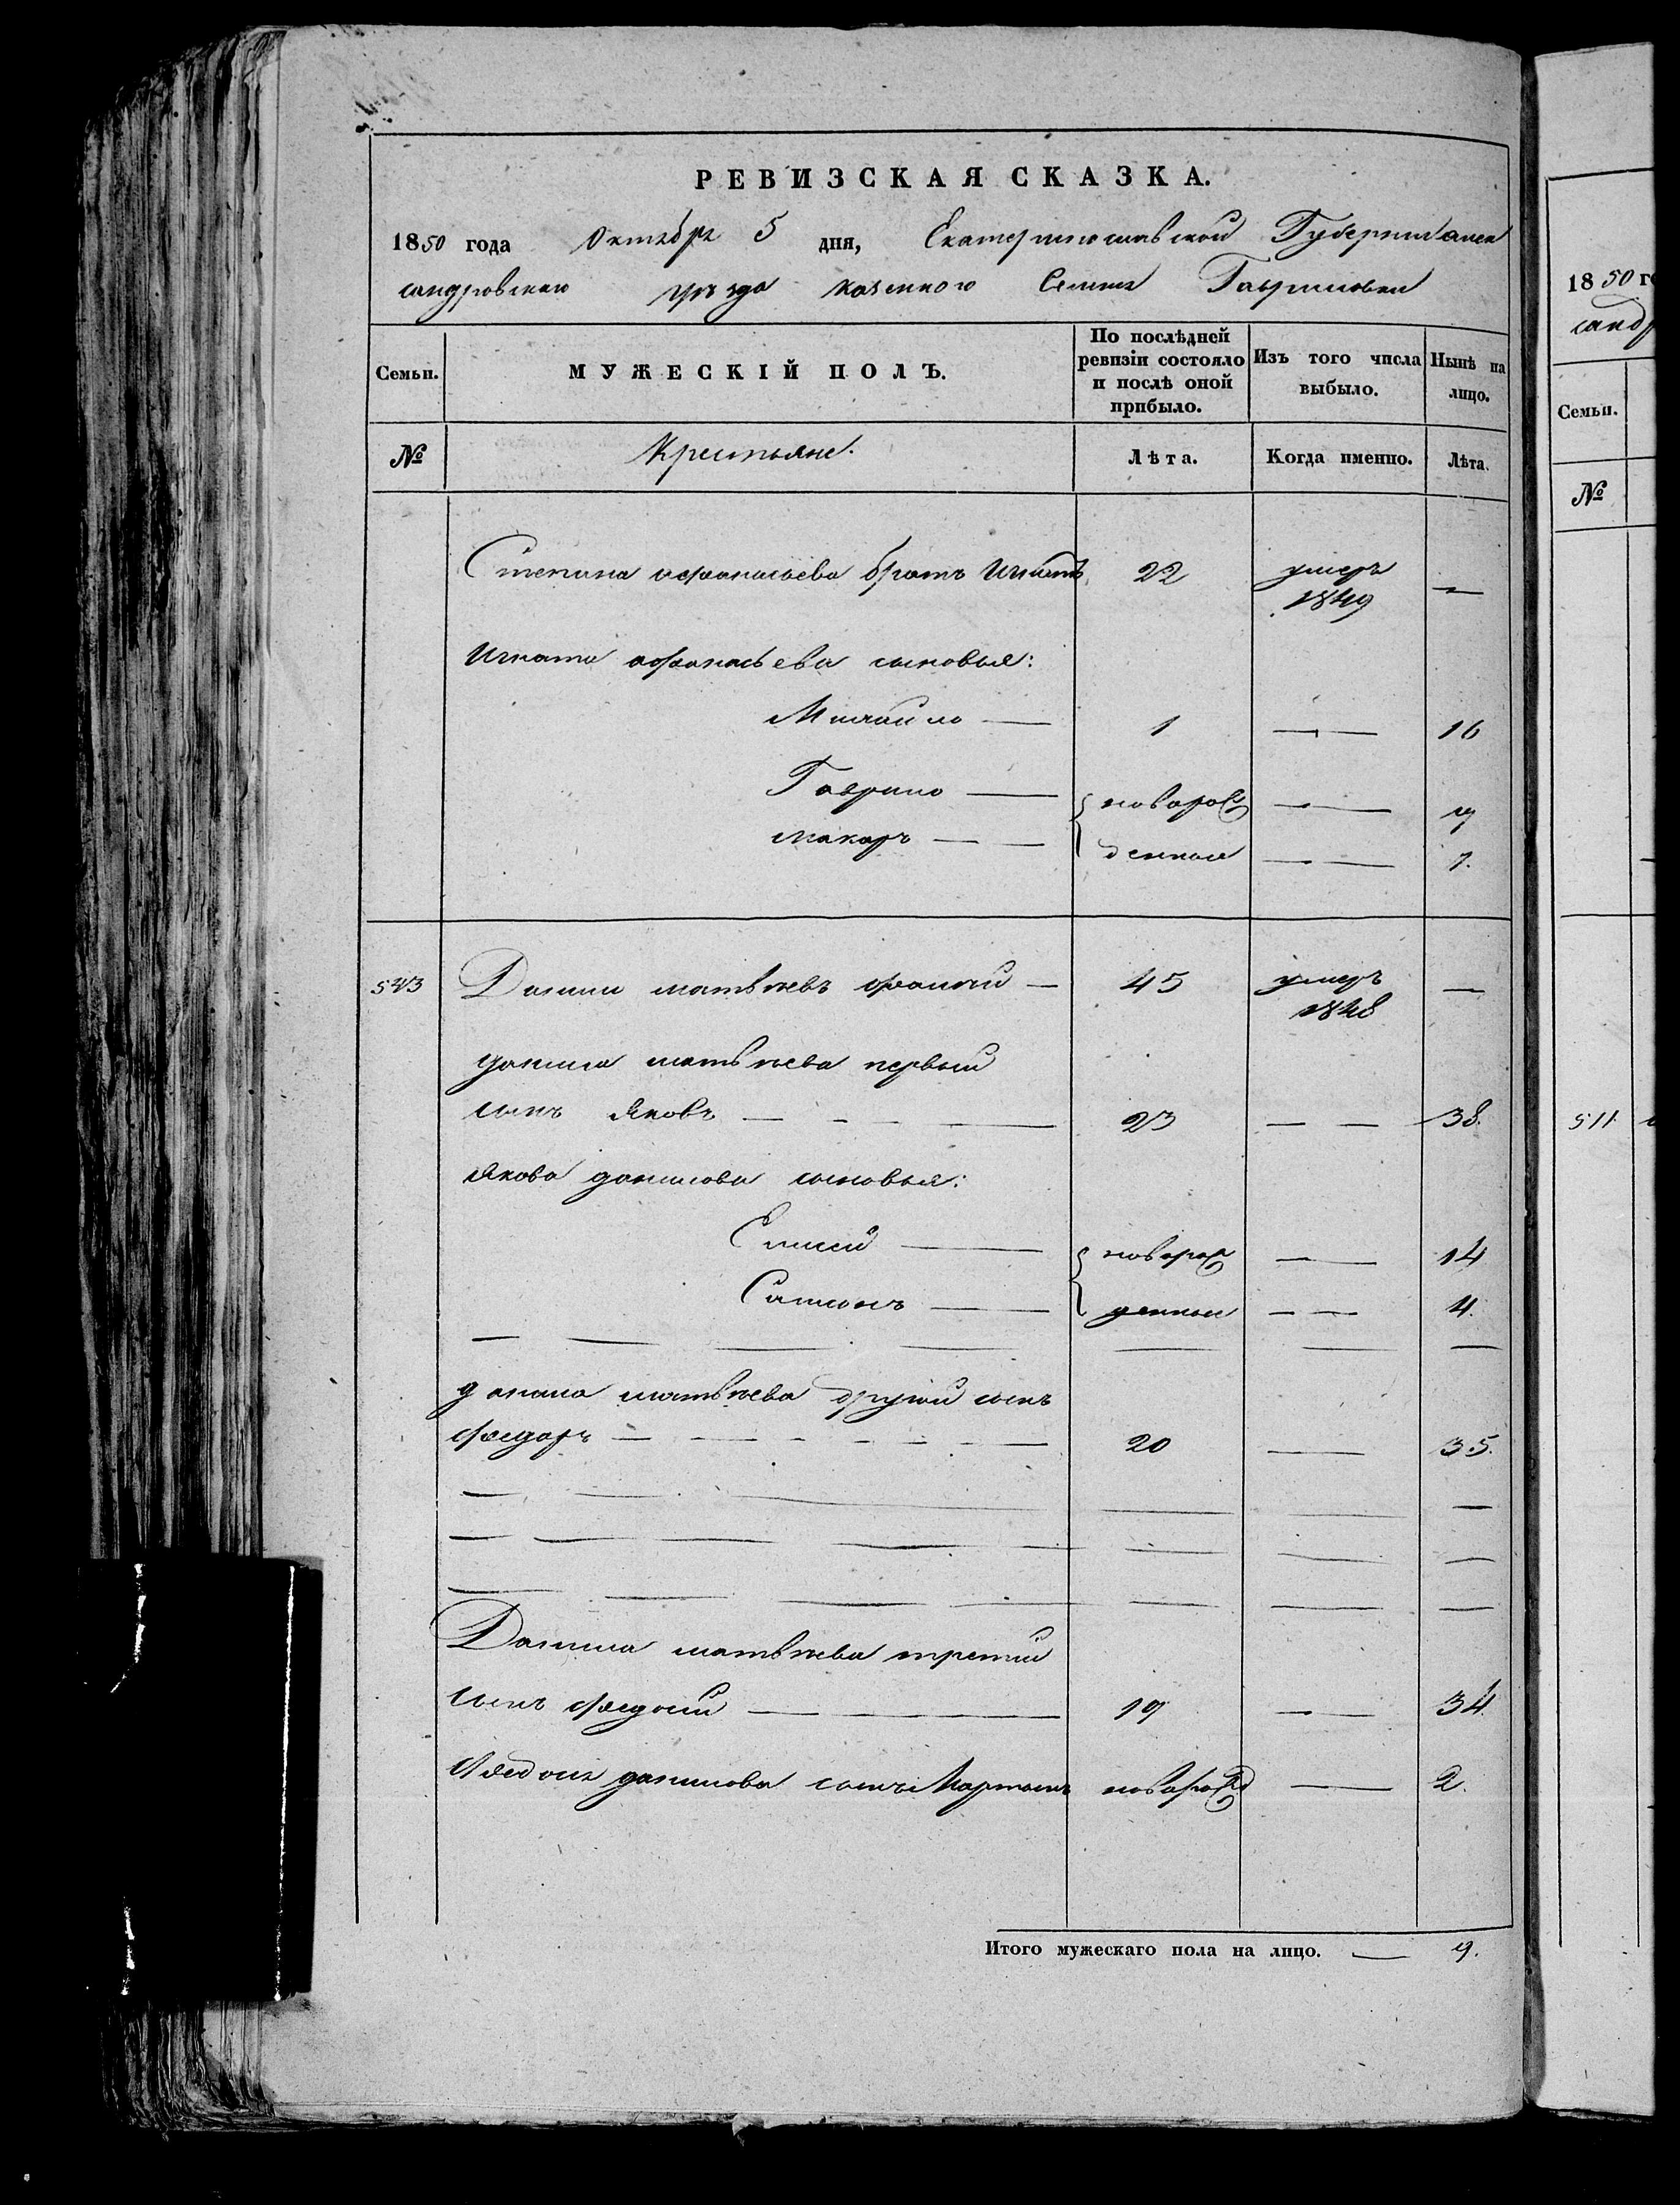 РЕВИЗСКАЯ СКАЗКА.
1850 года Октября 5 дня, Екатеринославской Губернии Алек
сандровскаго уѣзда казенного Селения Гавриловки
Семьи. МУЖЕСКІЙ ПОЛЪ. По послѣдней ревизіи состояло и послѣ оной прибыло. Изъ того числа выбыло. Нынѣ на лицо.
№ Крестьяне. Лѣта. Когда именно. Лѣта.
Степана афанасьева братъ Игнатъ 22 умеръ 1849 —
Игната афанасьева сыновья:
Михайло — 1 — 16
Гаврило — новорож — 7
макаръ — — денныя — 1.
Данило матвѣевъ — 45 умеръ 1848 —
данила матвѣева первый
сынъ Яковъ — 23 — — 38.
Якова данилова сыновья:
Елисей — новорож — 14
Самсонъ — денныя — — 4.
данила матвѣева другой сынъ
Федоръ — 20 — 35.
Данила матвѣева третий
сынъ Федосий — 19 — 34.
Федосия данилова сынъ Мартынъ новорожд — 2.
Итого мужескаго пола на лицо. — 9.
1850 го
сандр
Семьи.
№
511.